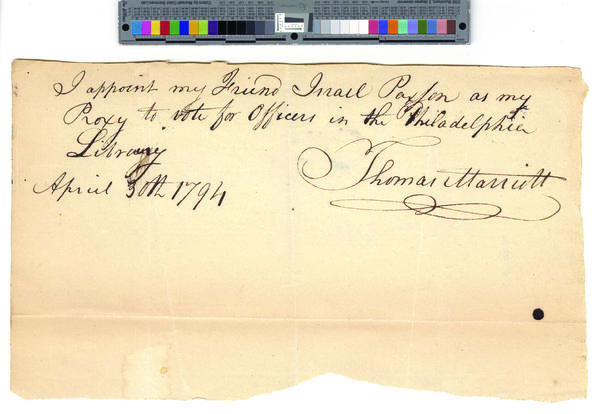 I appoint my Friend Israel Paxson as my
Proxy to vote for Officers in the Philadelphia
Library
Thomas Marriott
April 30th 1794